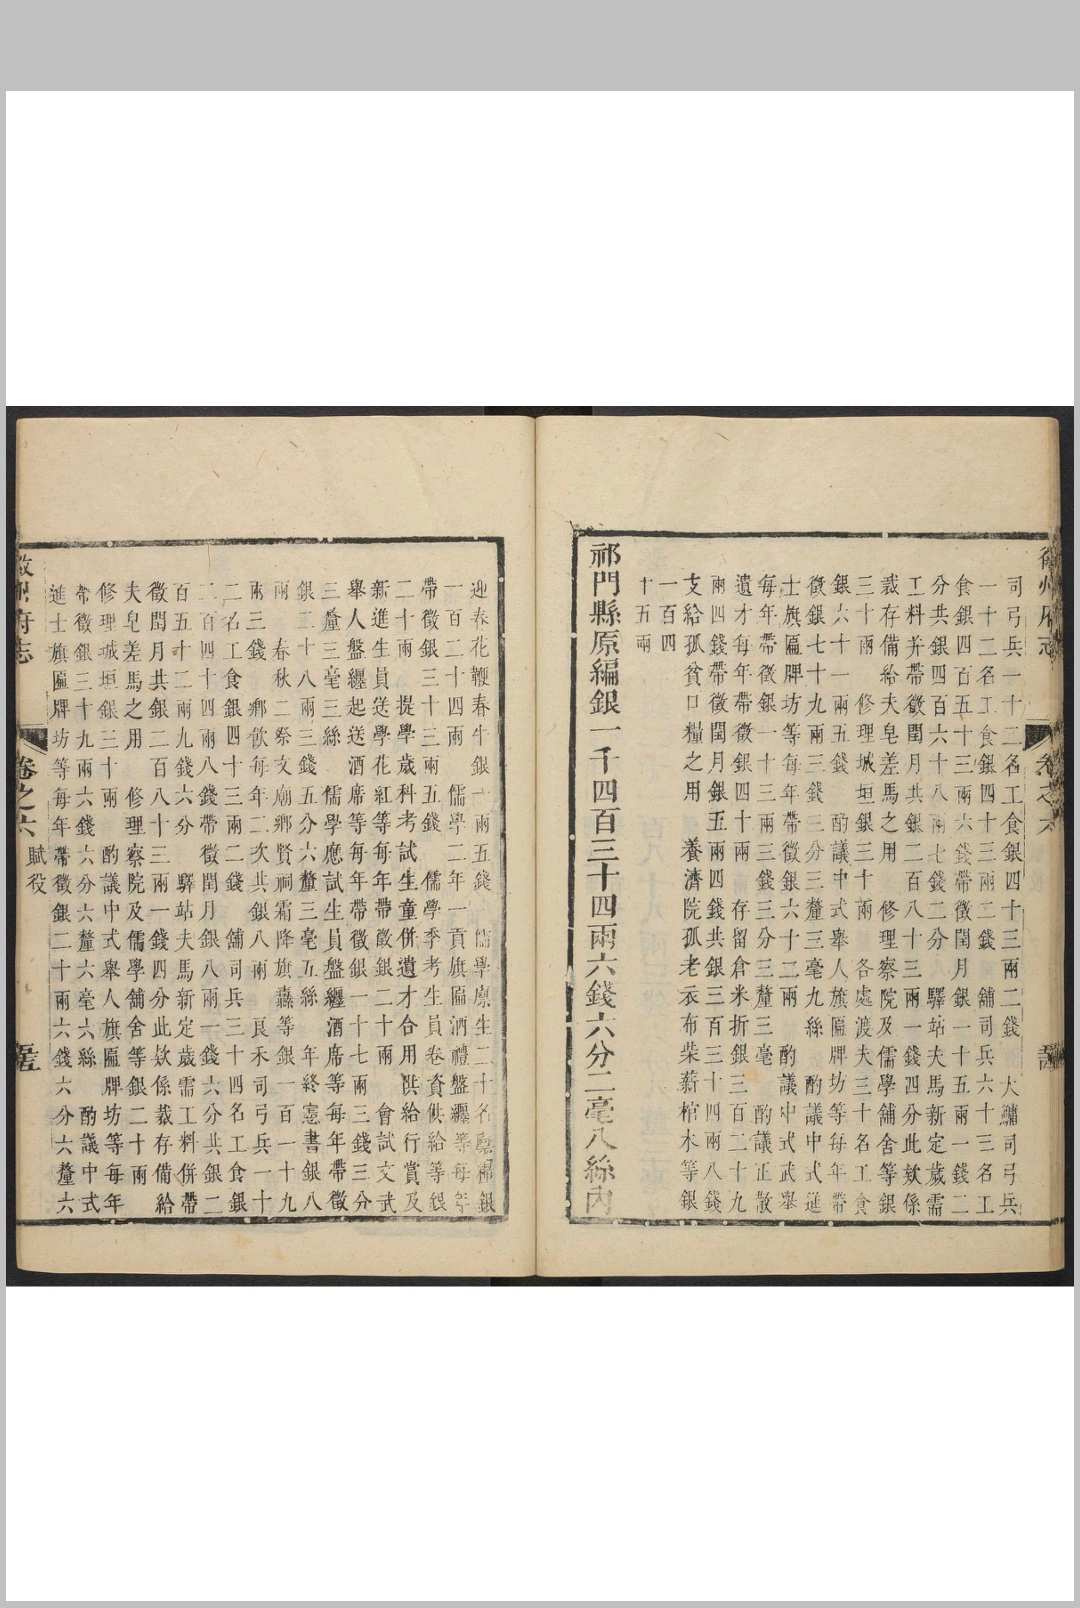 徽州府志
卷之六
司弓兵一十二名工食銀四十三兩二錢 大鏞司弓兵
一十二名工食銀四十三兩二錢 舖司兵六十三名工
食銀四百五十三兩六錢帶徵閏月銀一十五兩一錢二
分共銀四百六十八兩七錢二分 驛站夫馬新定歲需
工料并帶徵閏月共銀二百八十三兩一錢四分此欵係
裁存備給夫皂差馬之用 修理察院及儒學舖舍等銀
三十兩 修理城垣銀三十兩 各處渡夫三十名工食
銀六十一兩五錢 酌議中式舉人旗匾牌坊等每年帶
徵銀七十九兩三錢三分三釐三毫九絲 酌議中式進
士旗匾牌坊等每年帶徵銀六十二兩 酌議中式武舉
每年帶徵銀一十三兩三錢三分三釐三毫 酌議正散
遺才每年帶徵銀四十兩 存留倉米折銀三百二十九
兩四錢帶徵閏月銀五兩四錢共銀三百三十四兩八錢
支給孤貧口糧之用 養濟院孤老衣布柴薪棺木等銀
一百四
十五兩
祁門縣原編銀一千四百三十四兩六錢六分二毫八絲內
迎春花鞭春牛銀十兩五錢 儒學廩生二十名廩糧銀
一百二十四兩 儒學二年一貢旗匾酒禮盤纏等每年
帶徵銀三十三兩五錢 儒學季考生員卷資供給等銀
二十兩 提學歲科考試生童併遺才合用供給行賞及
新進生員送學花紅等每年帶徵銀二十兩 會試文武
舉人盤纏起送酒席等每年帶徵銀一十七兩三錢三分
三釐三毫三絲 儒學應試生員盤纏酒席等每年帶徵
銀二十八兩三錢五分六釐三毫五絲 年終憲書銀八
兩 春秋二祭文廟鄉賢祠霜降旗纛等銀一百一十九
兩三錢 鄉飲每年二次共銀八兩 良禾司弓兵一十
二名工食銀四十三兩二錢 舖司兵三十四名工食銀
二百四十四兩八錢帶徵閏月銀八兩一錢六分共銀二
百五十二兩九錢六分 驛站夫馬新定歲需工料併帶
徵閏月共銀二百八十三兩一錢四分此欵係裁存備給
夫皂差馬之用 修理察院及儒學舖舍等銀二十兩
修理城垣銀三十兩 酌議中式舉人旗匾牌坊等每年
帶徵銀三十九兩六錢六分六釐六毫六絲 酌議中式
進士旗匾牌坊等每年帶徵銀二十兩六錢六分六釐六
徽州府志
卷之六
賦役